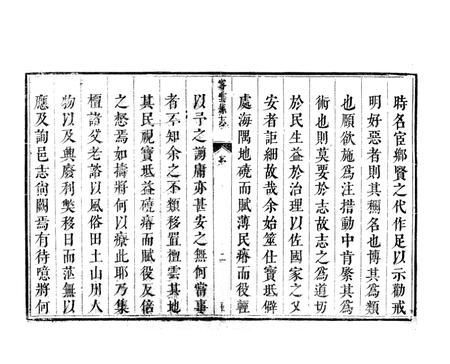 時名宦鄉賢之代作足以示勸戒
明好惡者則其稱名也博其爲類
也願欲施爲注措動中肯綮其爲
術也則莫要於志故志之爲道切
於民生益於治理以佐國家之乂
安者詎細故哉余始筮仕寶坻僻
處海隅地磽而賦薄民瘠而役輕
密雲縣志
二
以予之謭庸亦甚安之無何當事
者不知余之不類移置檀雲其
其民視寶坻益瘠而賦役反倍
之惄焉如擣將何以療此耶乃集
檀諸父老諮以風俗田土山川人
物以及興廢利弊移日而茫無以
應及詢邑志尚闕焉有待噫將何